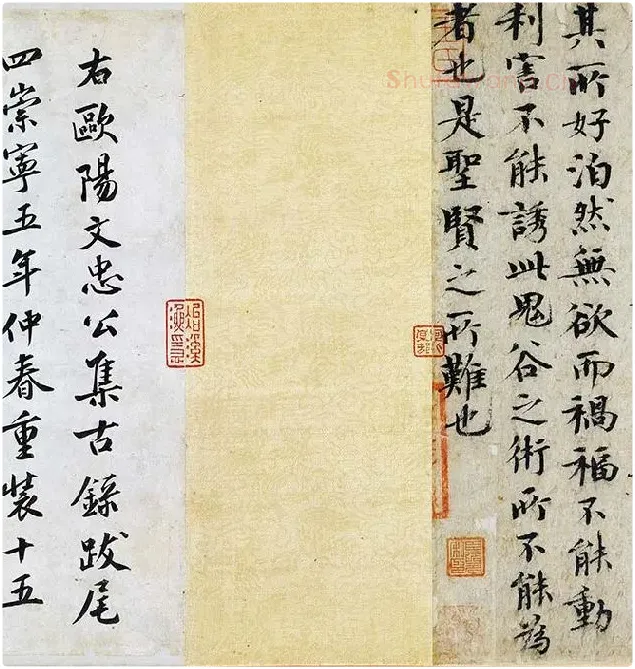 其所好泊然無欲而禍福不能動
利害不能誘此鬼谷之術所不能為
者也是聖賢之所難也
右歐陽文忠公集古錄跋尾
四崇寧五年仲春重裝十五